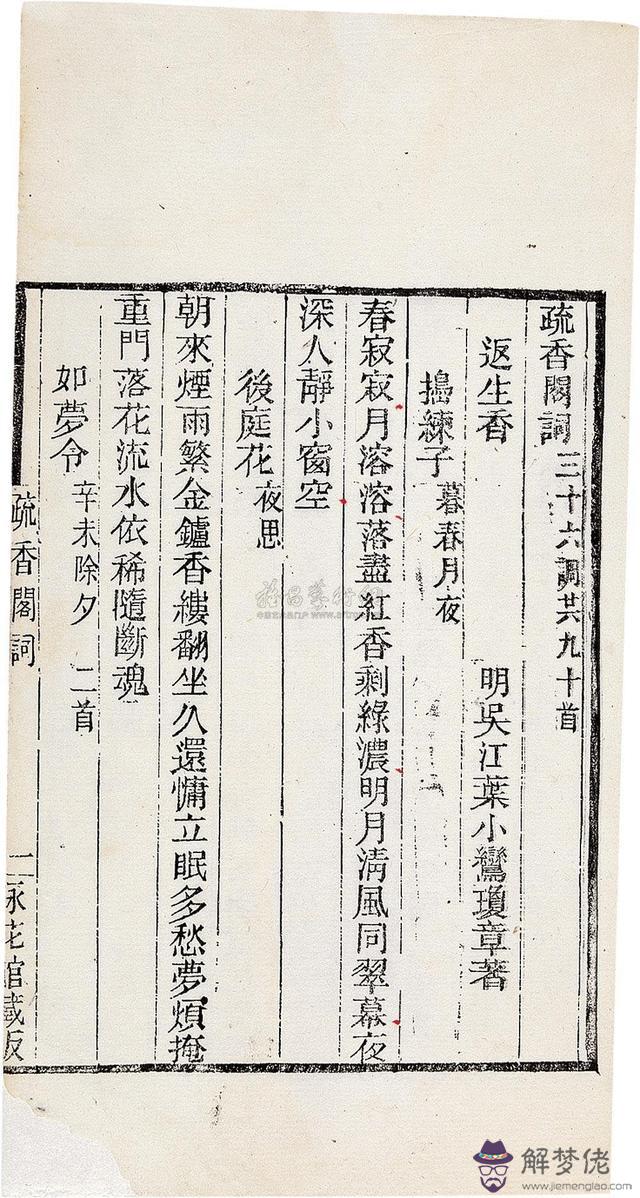 疏香閣詞三十六調共九十首
返生香　明吳江葉小鸞瓊章著
搗練子暮春月夜
春寂寂月溶溶落盡紅香剩綠濃明月清風同翠幕夜
深人靜小窗空
後庭花夜思
朝來煙雨繁金鑪香縷翻坐久還慵立眠多愁夢煩掩
重門落花流水依稀隨斷魂
如夢令辛未除夕　二首
疏香閣詞　二
花館藏版
解梦佬
www.jiemenglao.com